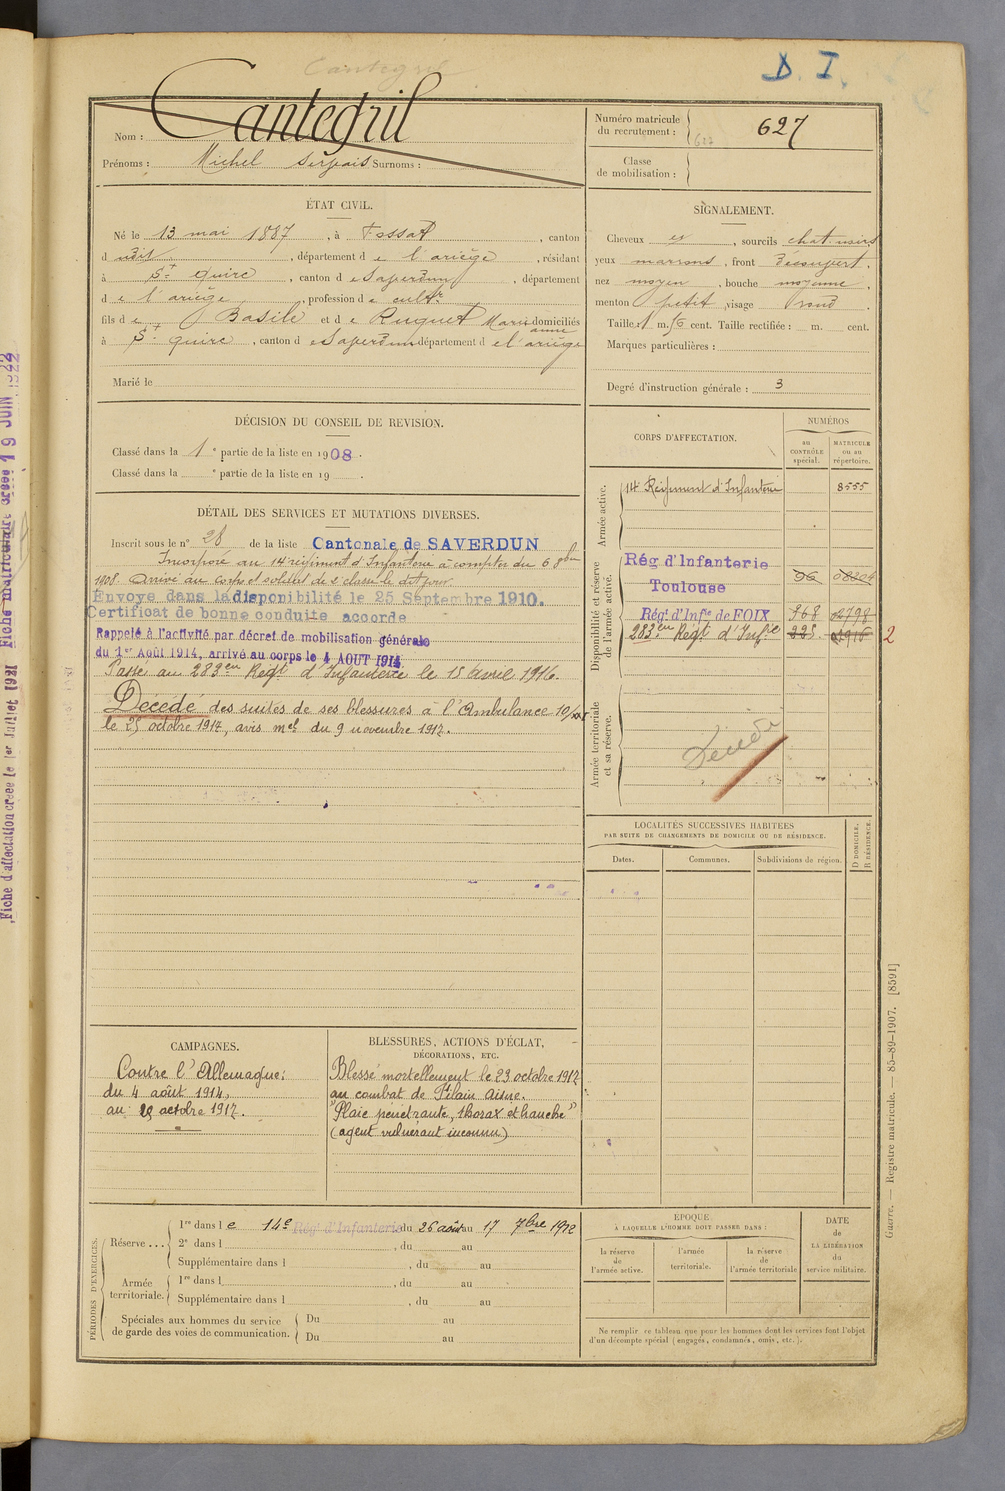 Cantegril
D. I.
Nom : Cantegril
Prénoms : Michel Surnoms :
Numéro matricule
du recrutement : 627
Classe
de mobilisation :
ÉTAT CIVIL.
Né le 13 mai 1887, à Fossat, canton
d udit, département de l'ariège, résidant
à St quirc, canton de Saverdun, département
de l'ariège, profession de cultr
fils de Basile et de Ruquet Marie domiciliés
anne
à St quirc, canton de Saverdun département de l'ariège
Marié le
SIGNALEMENT.
Cheveux et, sourcils chat.
yeux marrons, front découvert,
nez moyen, bouche moyenne,
menton petit visage rond.
Taille 1 m. cent. Taille rectifiée : m. cent.
Marques particulières :
Degré d'instruction générale : 3
DÉCISION DU CONSEIL DE REVISION.
Classé dans la 1e partie de la liste en 1908.
Classé dans la e partie de la liste en 19 .
DÉTAIL DES SERVICES ET MUTATIONS DIVERSES.
Inscrit sous le n° 28 de la liste Cantonale de SAVERDUN
Incorporé au 14e régiment d'Infanterie à compter du 6 8bre
1908. Arrivé au corps et soldat de 2e classe le dit jour.
Envoyé dans la disponibilité le 25 Septembre 1910.
Certificat de bonne conduite accordé
Rappelé à l'activité par décret de mobilisation générale
du 1er Août 1914, arrivé au corps le 4 AOUT 1914
Passé au 283em Régt d'Infanterie le 15 Avril 1916.
Décédé des suites de ses blessures à l'Ambulance 10/
le 25 octobre 1917, avis mel du 9 novembre 1917.
CORPS D'AFFECTATION.
NUMÉROS
au
CONTRÔLE
spécial.
MATRICULE
ou au
répertoire.
Armée active.
14e Régiment d'Infanterie 8555
Disponibilité et réserve
de l'armée active.
Rég d'Infanterie
Toulouse 96
Régt d'Infie de FOIX 368 02798
283em Régt d'Infie 223
2
Armée territoriale
et sa réserve.
LOCALITÉS SUCCESSIVES HABITÉES
PAR SUITE DE CHANGEMENTS DE DOMICILE OU DE RÉSIDENCE.
Dates.
Communes.
Subdivisions de région.
D DOMICILE.
R RÉSIDENCE.
CAMPAGNES.
Contre l'Allemagne:
du 4 août 1914,
au 25 octobre 1917.
BLESSURES, ACTIONS D'ÉCLAT,
DÉCORATIONS, ETC.
Blessé mortellement le 23 octobre 1917
au combat de Filain Aisne.
"Plaie pénétrante, thorax et hanche"
(agent vulnérant inconnu)
PÉRIODES D'EXERCICES.
Réserve ... 1re dans le 14e Régt d'Infanterie du 26 août au 17 7bre 1912
2e dans l , du au
Supplémentaire dans l , du au
Armée
territoriale. 1re dans l , du au
Supplémentaire dans l , du au
Spéciales aux hommes du service
de garde des voies de communication.
Du au
Du au
ÉPOQUE
À LAQUELLE L'HOMME DOIT PASSER DANS :
la réserve
de
l'armée active.
l'armée
territoriale.
la réserve
de
l'armée territoriale
DATE
de
LA LIBÉRATION
du
service militaire.
Ne remplir ce tableau que pour les hommes dont les services font l'objet
d'un décompte spécial (engagés, condamnés, omis, etc.).
Guerre. — Registre matricule. — 85-89-1907. [8591]
Fiche d'affectation créée le 1er Juillet 1921 Fiche matriculaire créée 19 JUIN 1922